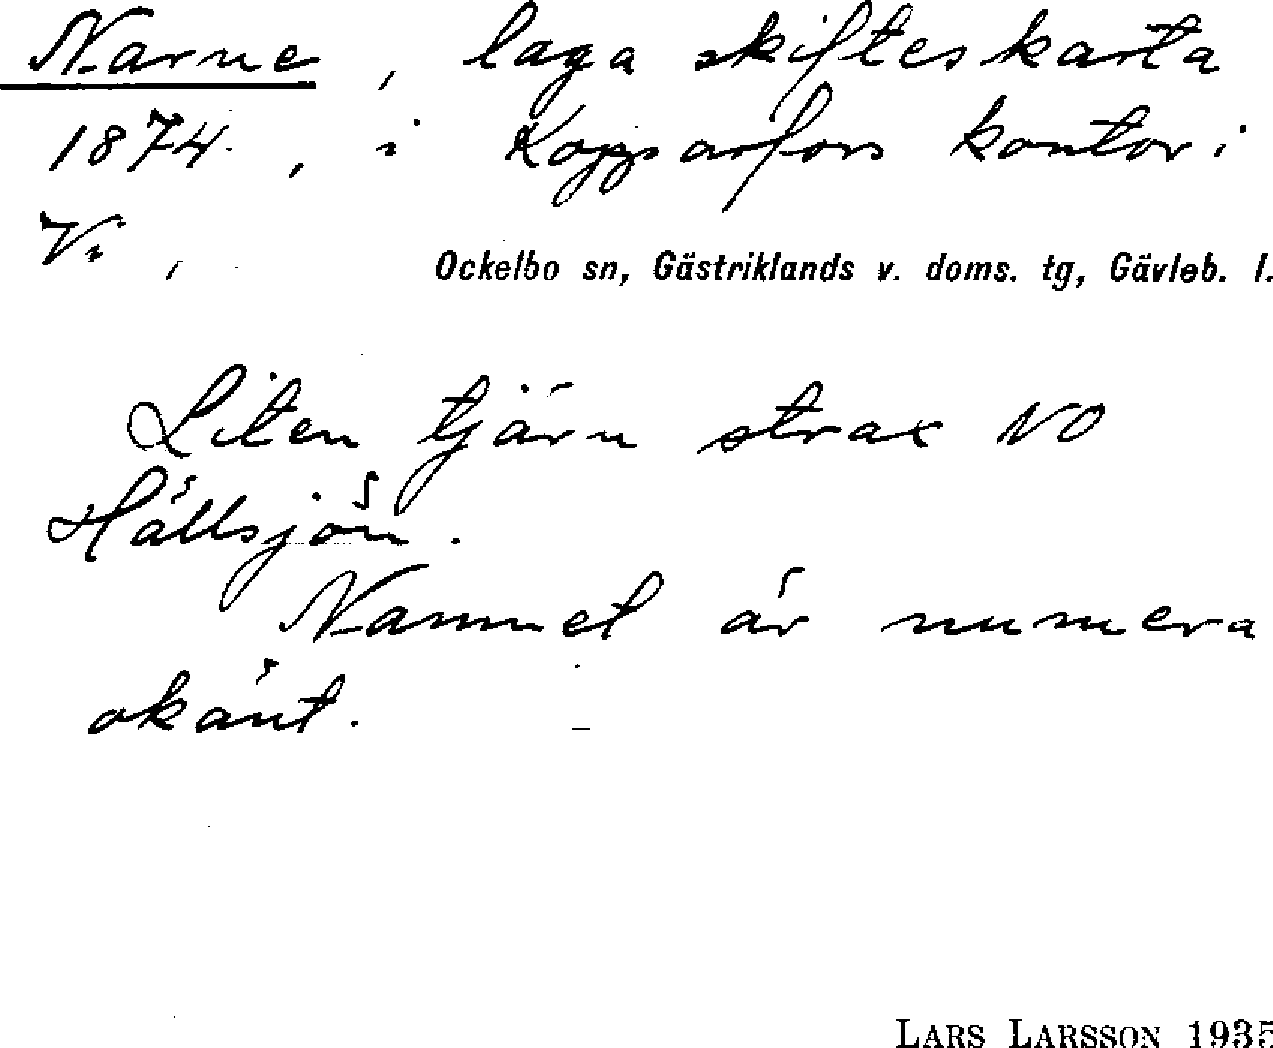 Narne, laga skifteskarta
1874, i Kopparfors kontor i
Vi,
Ockelbo sn, Gästriklands v. doms. tg, Gävleb. l.
Liten tjärn strax NO
Hällsjön.
Namnet är numera
okänt.
LARS LARSSON 1935